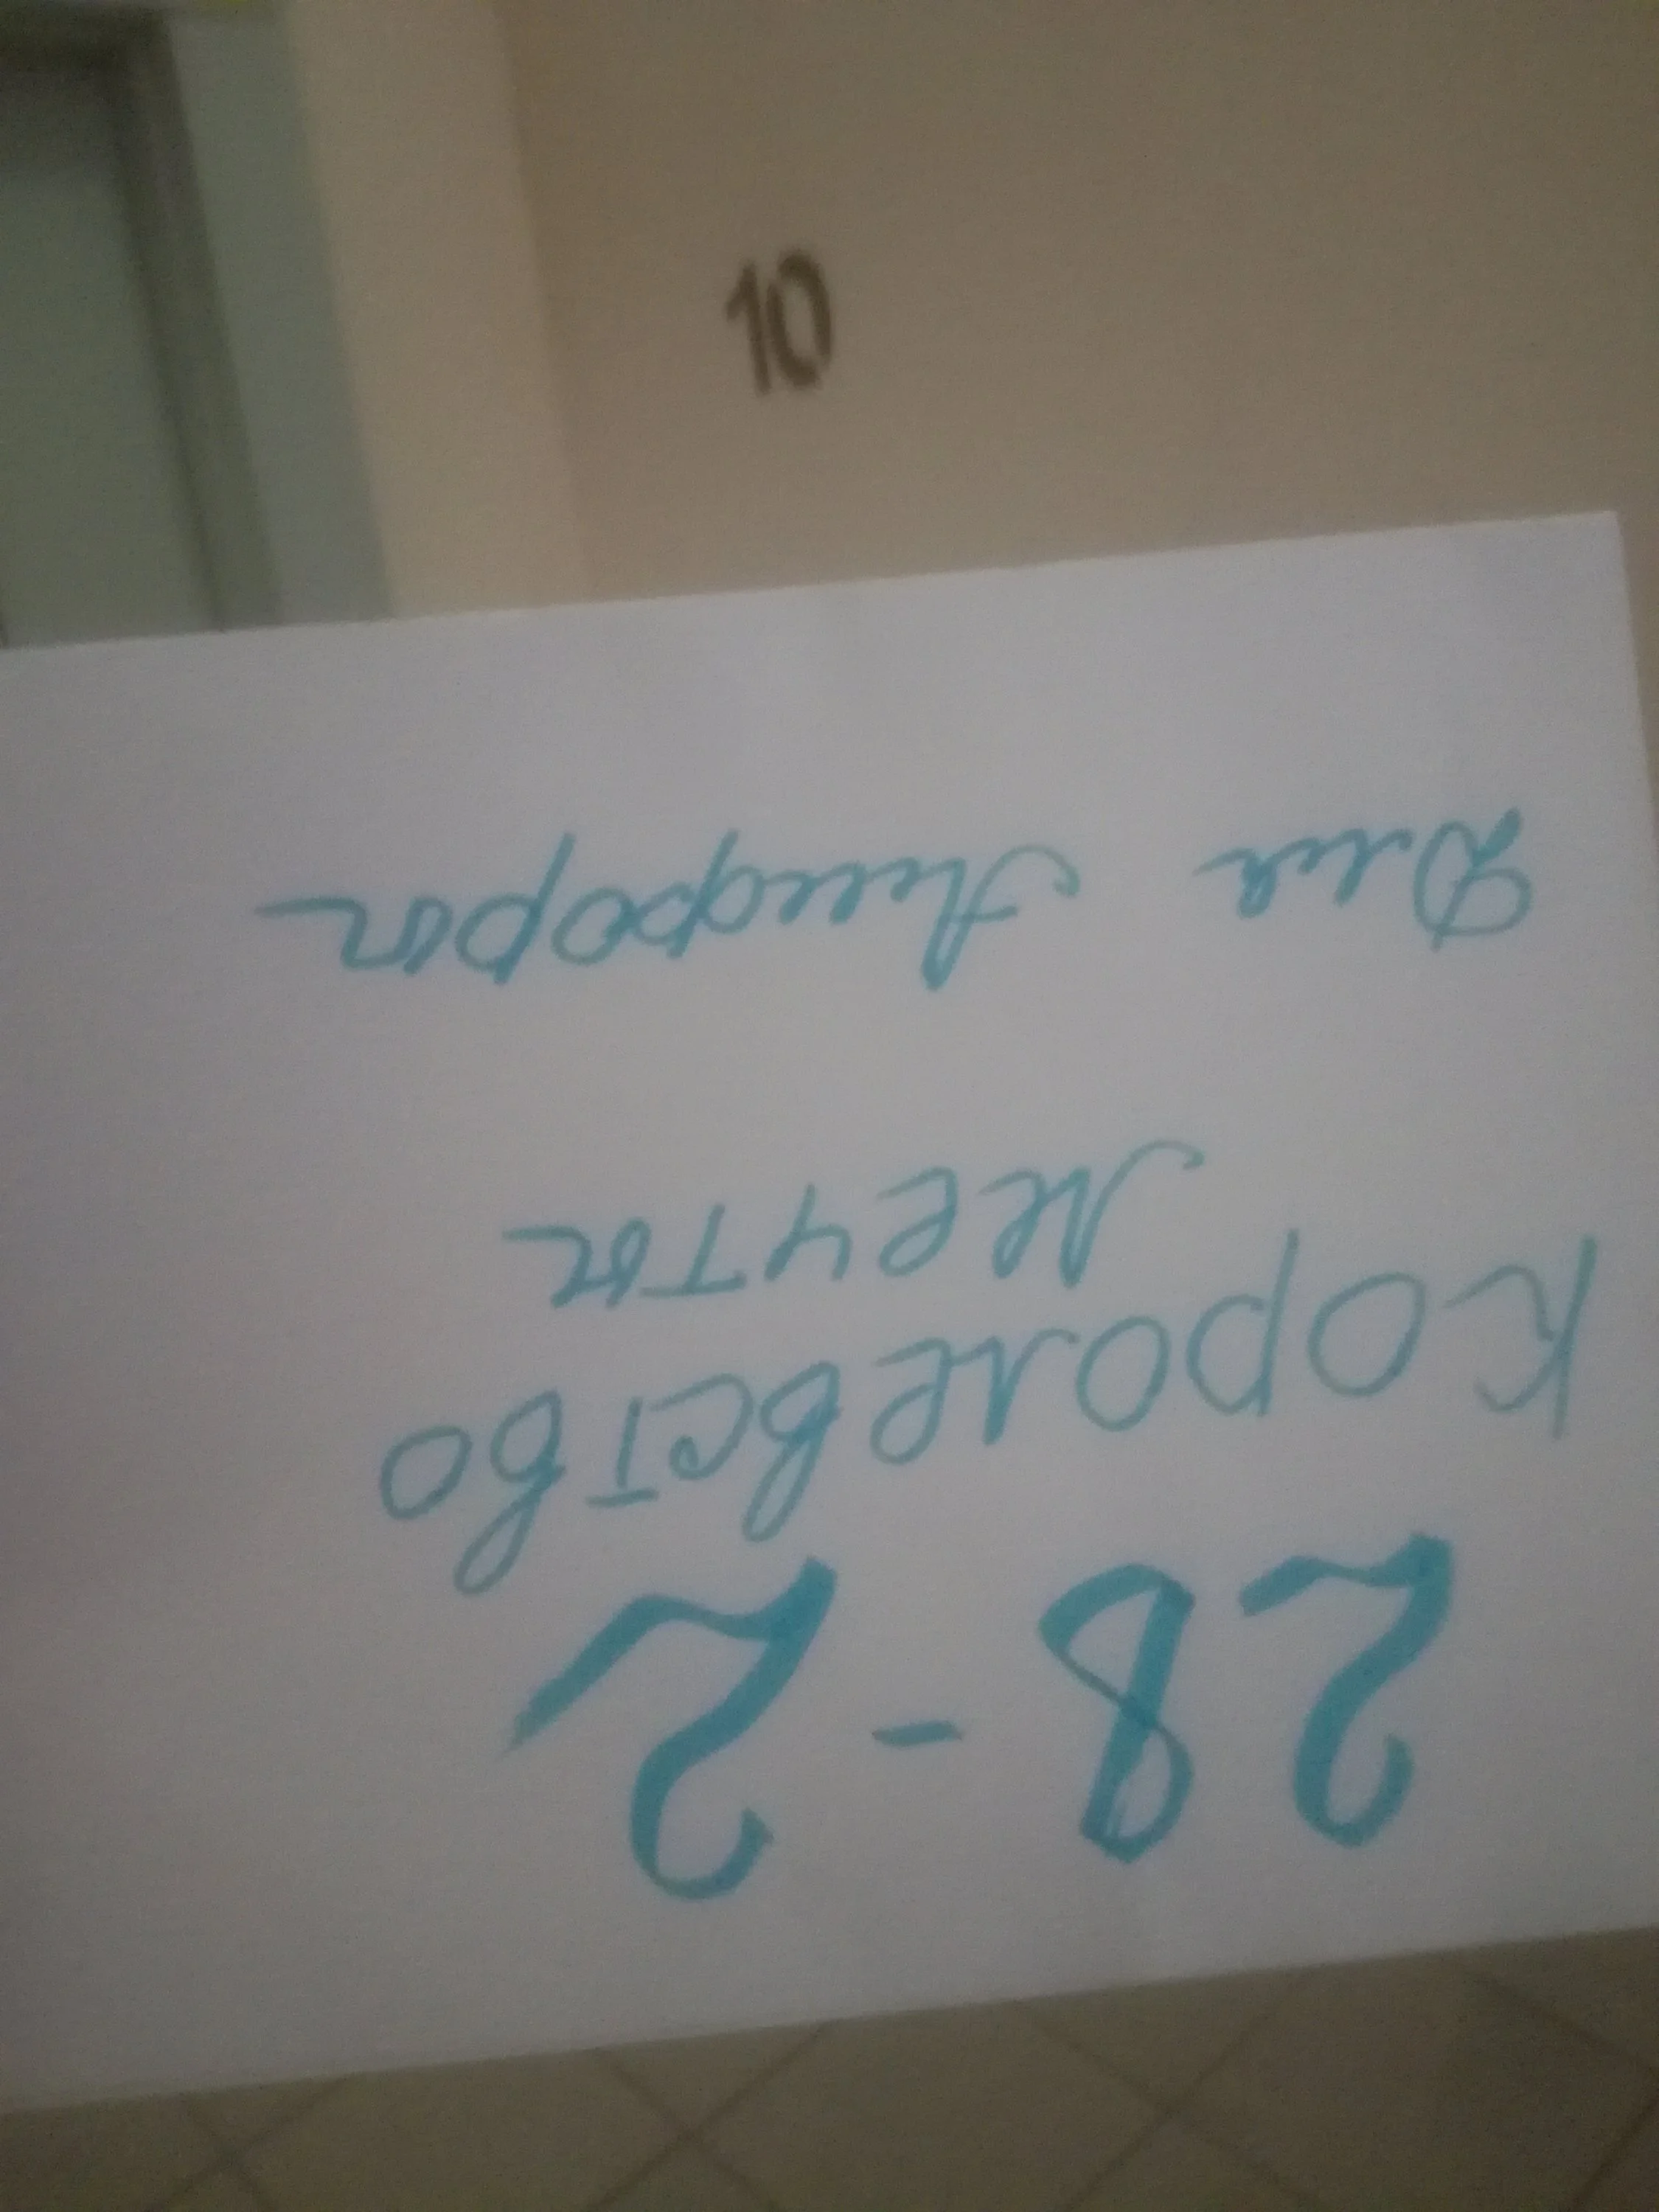 10
28-2
Королевство
Мечты
Для